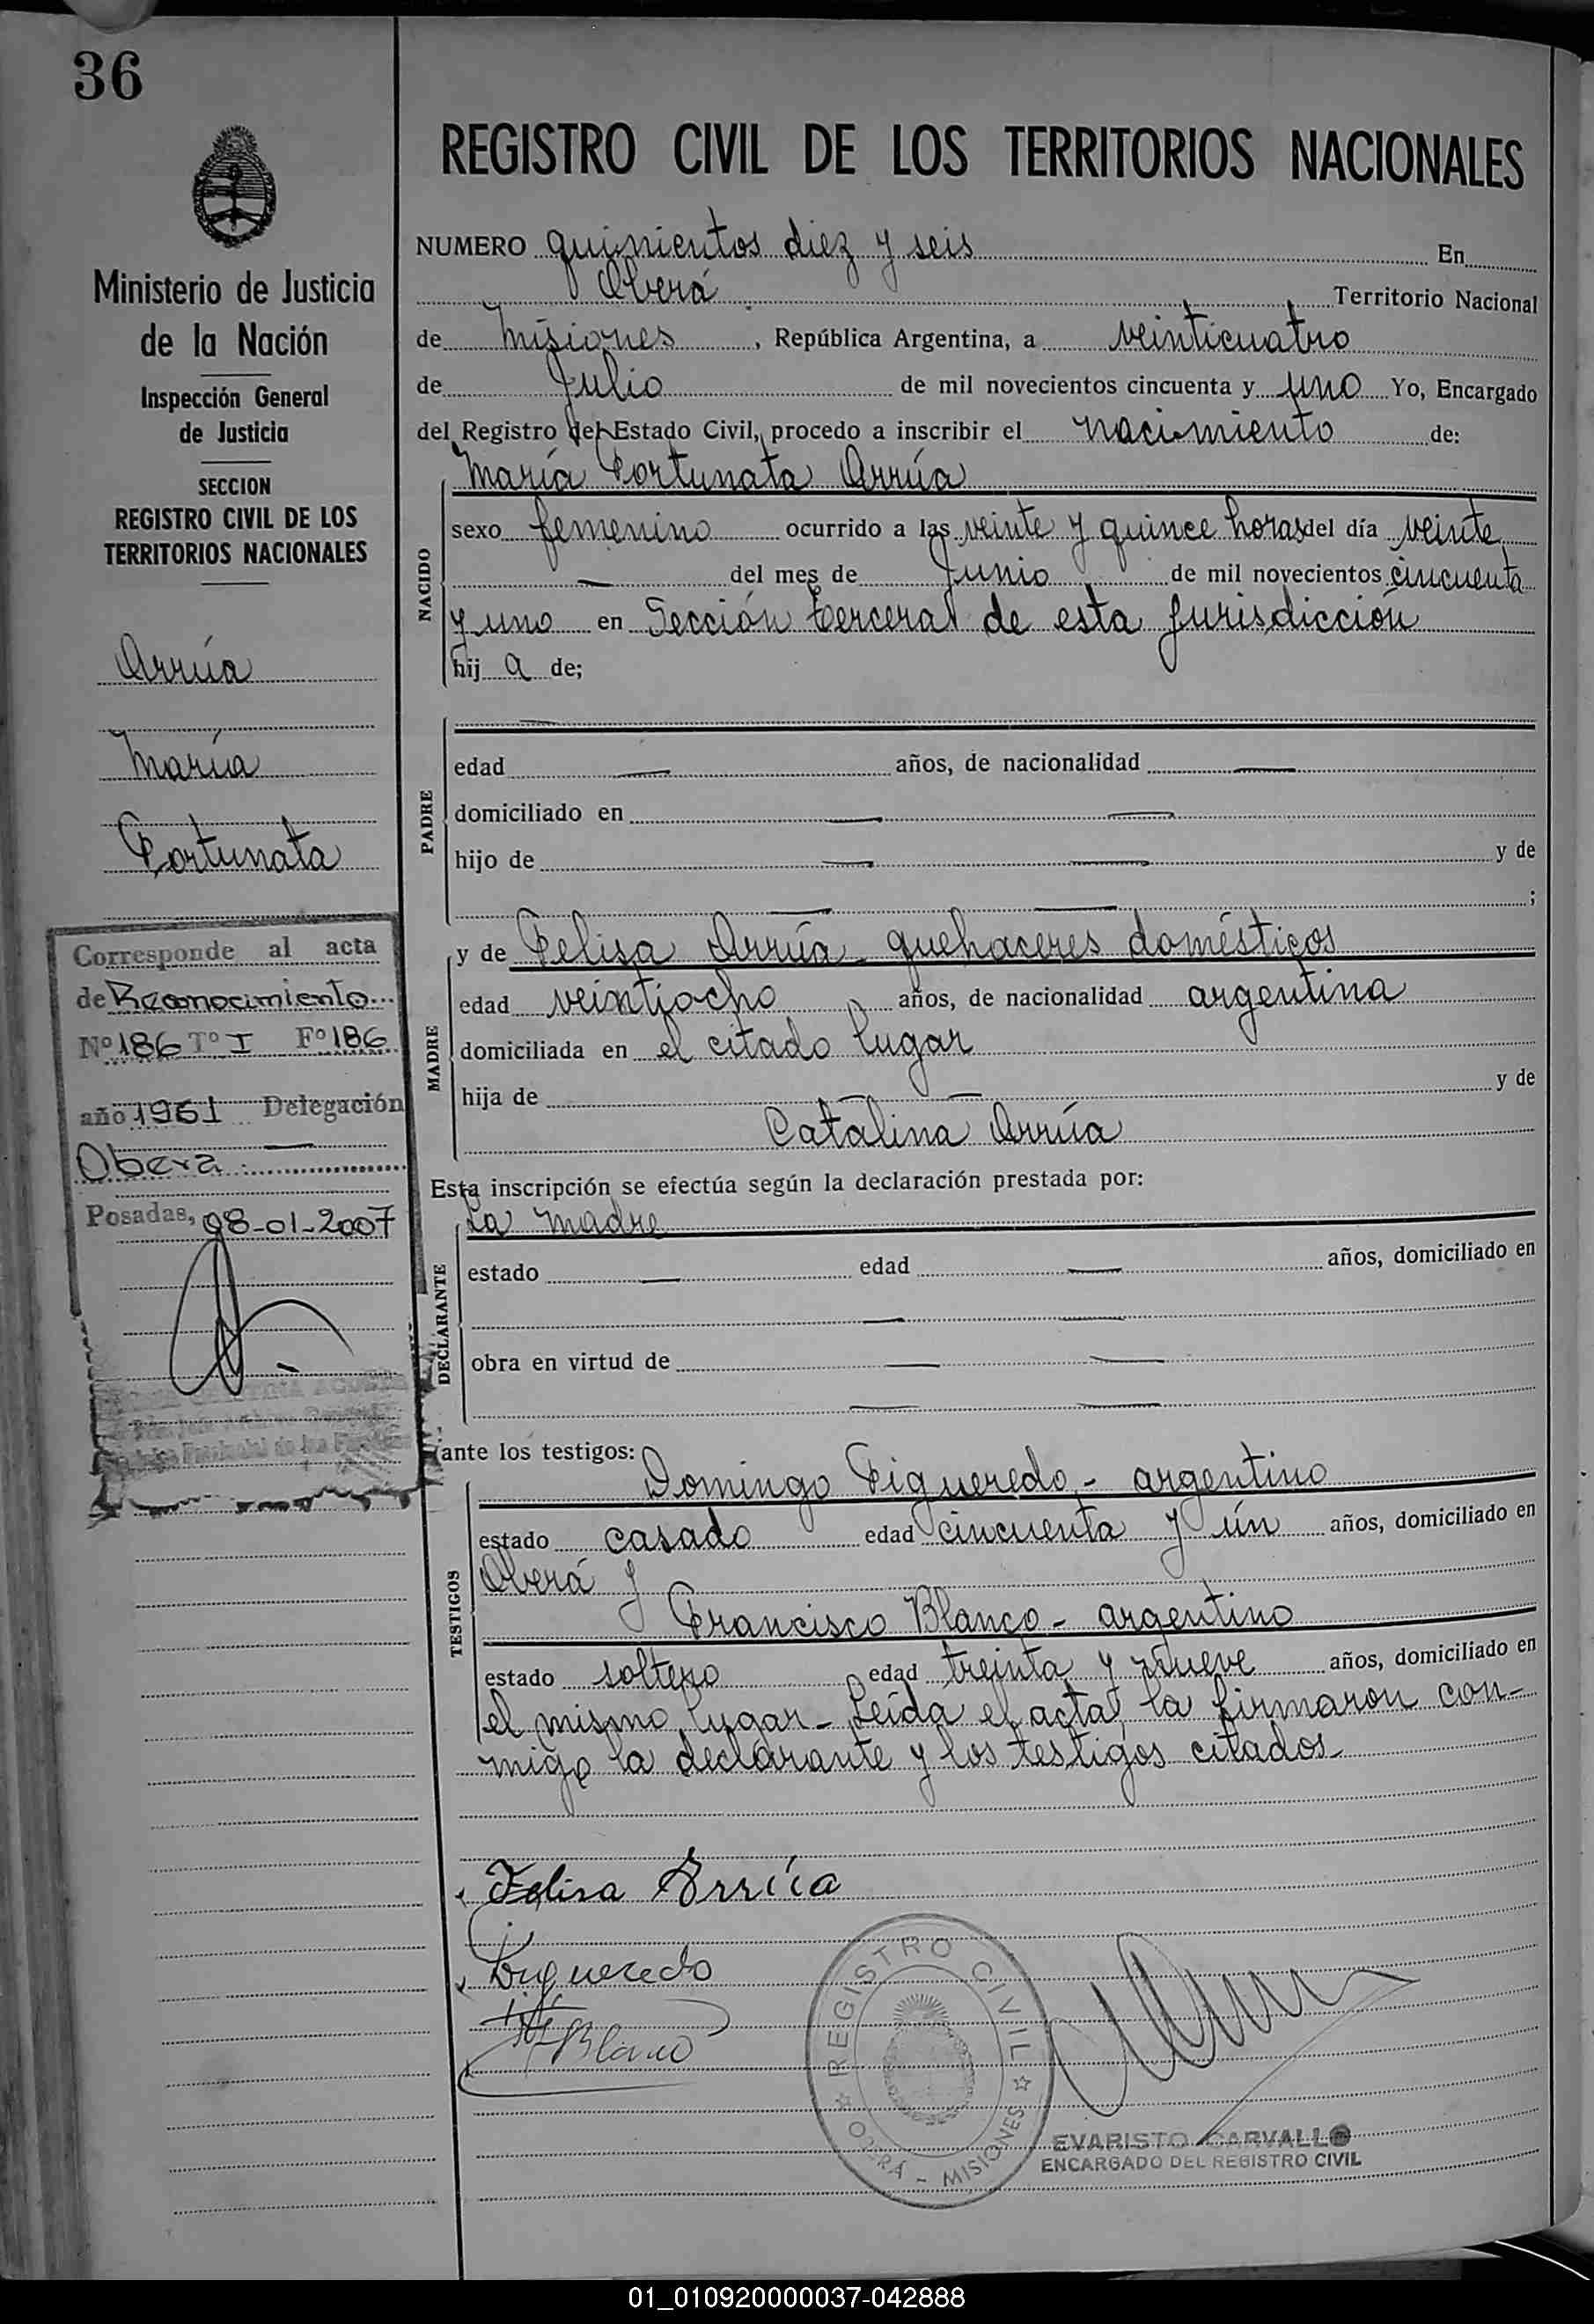 36
Ministerio de Justicia
de la Nación
Inspección General
de Justicia
SECCION
REGISTRO CIVIL DE LOS
TERRITORIOS NACIONALES
Arrúa
María
Fortunata
Corresponde al acta
de Reconocimiento
Nº 186 Tº I Fº 186
año 1961 Delegación
Obera
Posadas, 08-01-2007
REGISTRO CIVIL DE LOS TERRITORIOS NACIONALES
NUMERO quinientos diez y seis En
Oberá Territorio Nacional
de Misiones, República Argentina, a veinticuatro
de Julio de mil novecientos cincuenta y uno Yo, Encargado
del Registro del Estado Civil, procedo a inscribir el nacimiento de:
María Fortunata Arrúa
NACIDO
sexo femenino ocurrido a las veinte y quince horas del día veinte
del mes de Junio de mil novecientos cincuenta
y uno en Sección tercera de esta jurisdicción
hij a de;
PADRE
edad años, de nacionalidad
domiciliado en
hijo de y de
;
y de Felisa Arrúa - quehaceres domésticos
MADRE
edad veintiocho años, de nacionalidad argentina
domiciliada en el citado lugar
hija de y de
Catalina Arrúa
Esta inscripción se efectúa según la declaración prestada por:
La madre
DECLARANTE
estado edad años, domiciliado en
obra en virtud de
ante los testigos:
Domingo Figueredo - argentino
TESTIGOS
estado casado edad cincuenta y ún años, domiciliado en
Oberá y
Francisco Blanco - argentino
estado soltero edad treinta y nueve años, domiciliado en
el mismo lugar - Leída el acta, la firmaron con-
migo la declarante y los testigos citados
Felisa Arrúa
Figueredo
Blanco
REGISTRO CIVIL
OBERÁ - MISIONES
EVARISTO CARVALLO
ENCARGADO DEL REGISTRO CIVIL
01_010920000037-042888